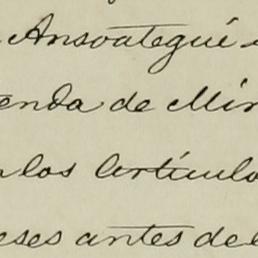 Ansoategui
enda de Min
los Artículo
eses antes del